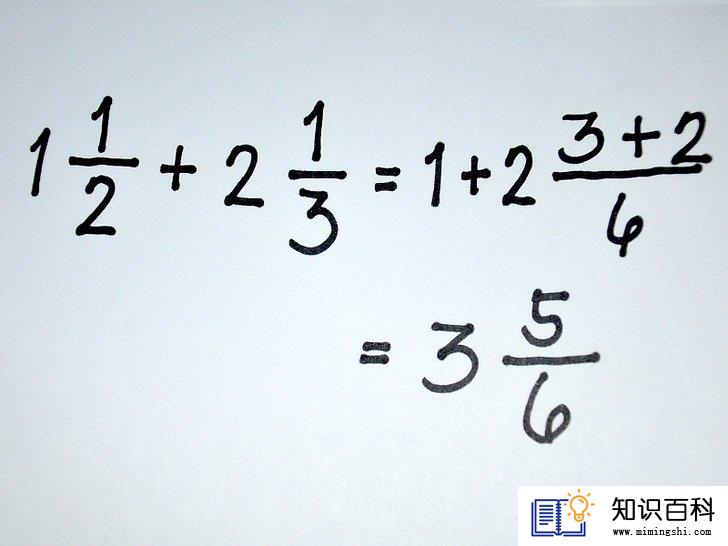 1 1/2 + 2 1/3 = 1+2 3+2/6
= 3 5/6
知识百科
www.mimingshi.com